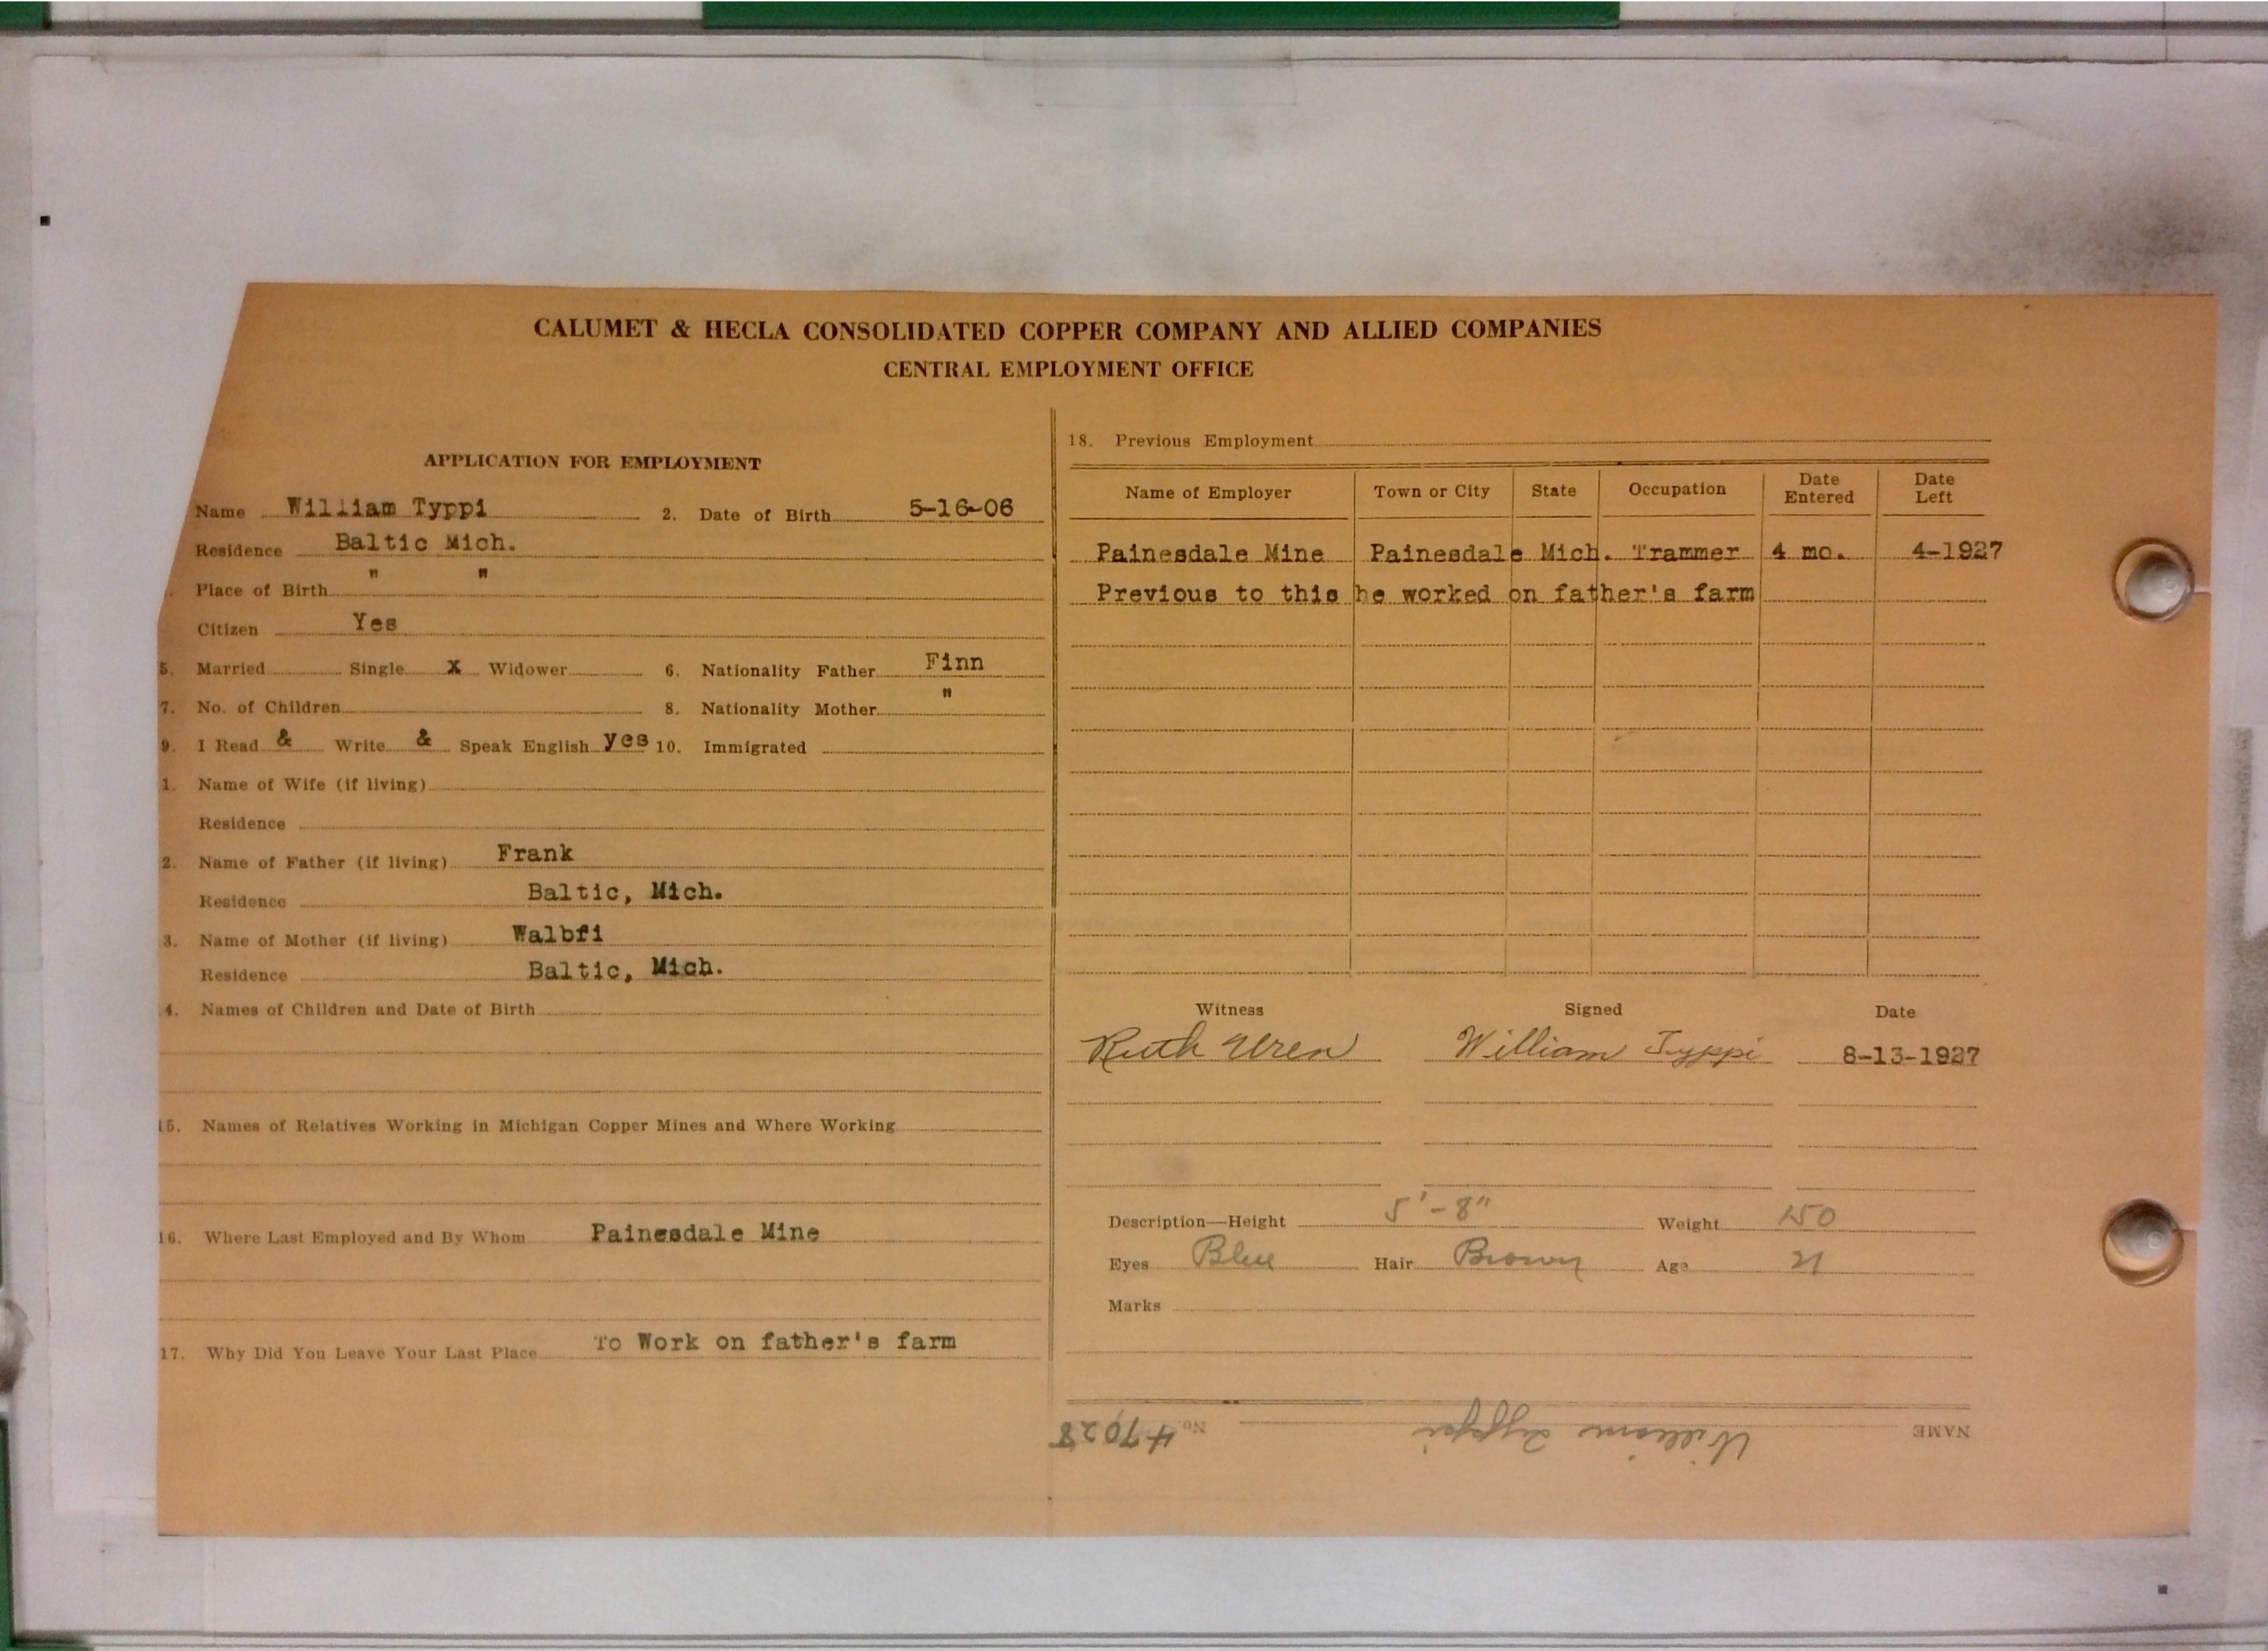 CALUMET & HECLA CONSOLIDATED COPPER COMPANY AND ALLIED COMPANIES
CENTRAL EMPLOYMENT OFFICE
APPLICATION FOR EMPLOYMENT
Name William Typpi 2. Date of Birth 5-16-06
Residence Baltic Mich.
Place of Birth " "
Citizen Yes
5. Married Single x Widower 6. Nationality Father Finn
7. No. of Children 8. Nationality Mother "
9. I Read & Write & Speak English yes 10. Immigrated
1. Name of Wife (if living)
Residence
2. Name of Father (if living) Frank
Residence Baltic, Mich.
3. Name of Mother (if living) Walbfi
Residence Baltic, Mich.
4. Names of Children and Date of Birth
15. Names of Relatives Working in Michigan Copper Mines and Where Working
16. Where Last Employed and By Whom Painesdale Mine
17. Why Did You Leave Your Last Place To Work on father's farm
18. Previous Employment
Name of Employer Town or City State Occupation Date Entered Date Left
Painesdale Mine Painesdale Mich. Trammer 4 mo. 4-1927
Previous to this he worked on father's farm
Witness Signed Date
Ruth Uren William Typpi 8-13-1927
Description—Height 5'-8" Weight 150
Eyes Blue Hair Brown Age 21
Marks
NAME William Typpi No. 47028